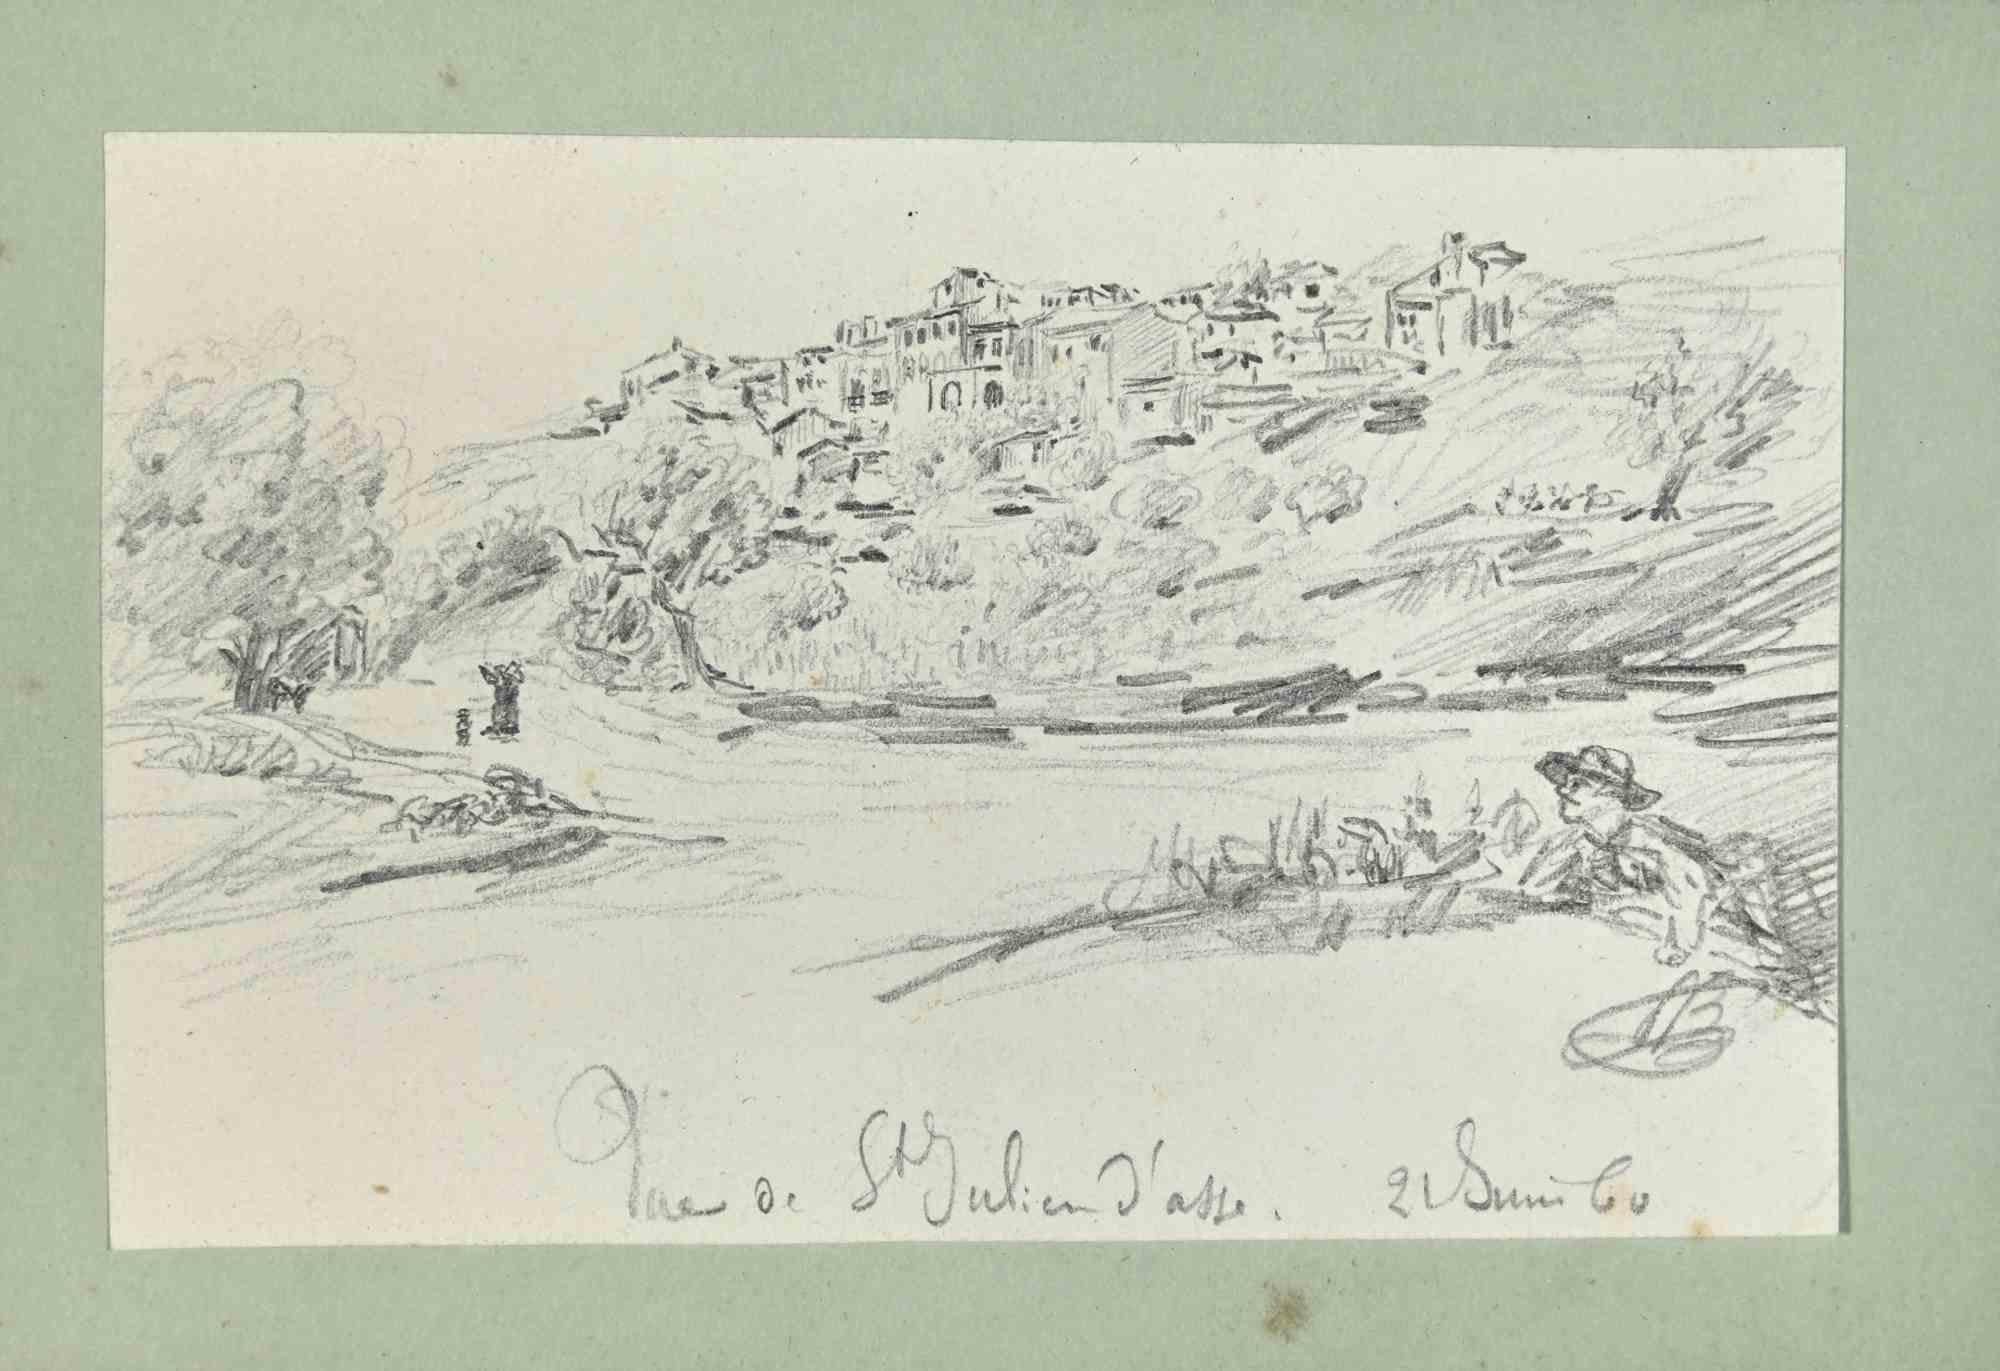 Vue de St Julien d'asse. 21 Juin 60